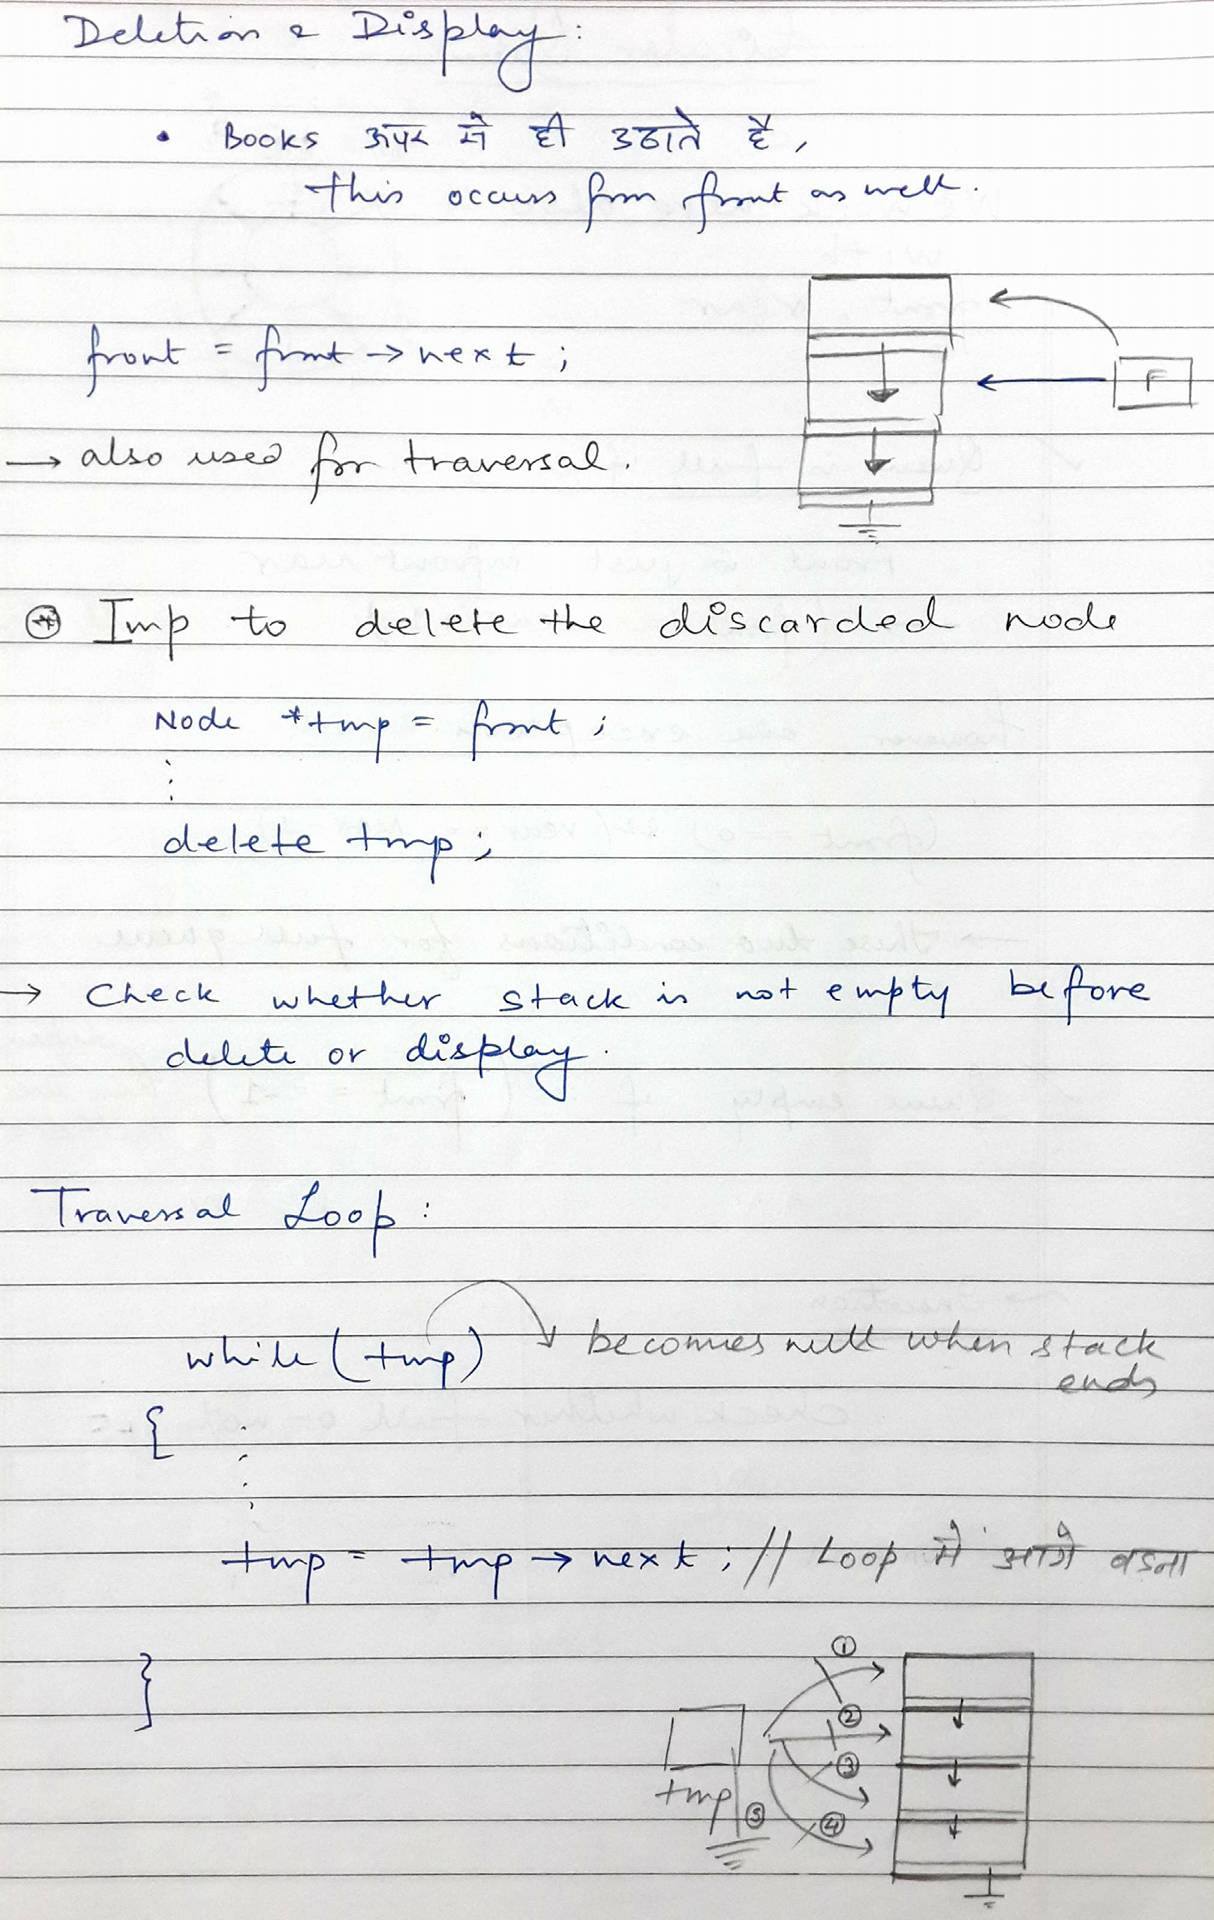 Deletion & Display:
• Books ऊपर से ही उठाते है,
this occurs from front as well.
front = front → next ;
F
→ also used for traversal.
* Imp to delete the discarded node
Node *tmp = front ;
⋮
delete tmp ;
→ Check whether stack is not empty before
delete or display.
Traversal Loop :
while (tmp) becomes null when stack
ends
{
⋮
tmp = tmp → next ; // Loop मे आगे बडना
}
①
②
③
tmp ⑤
④